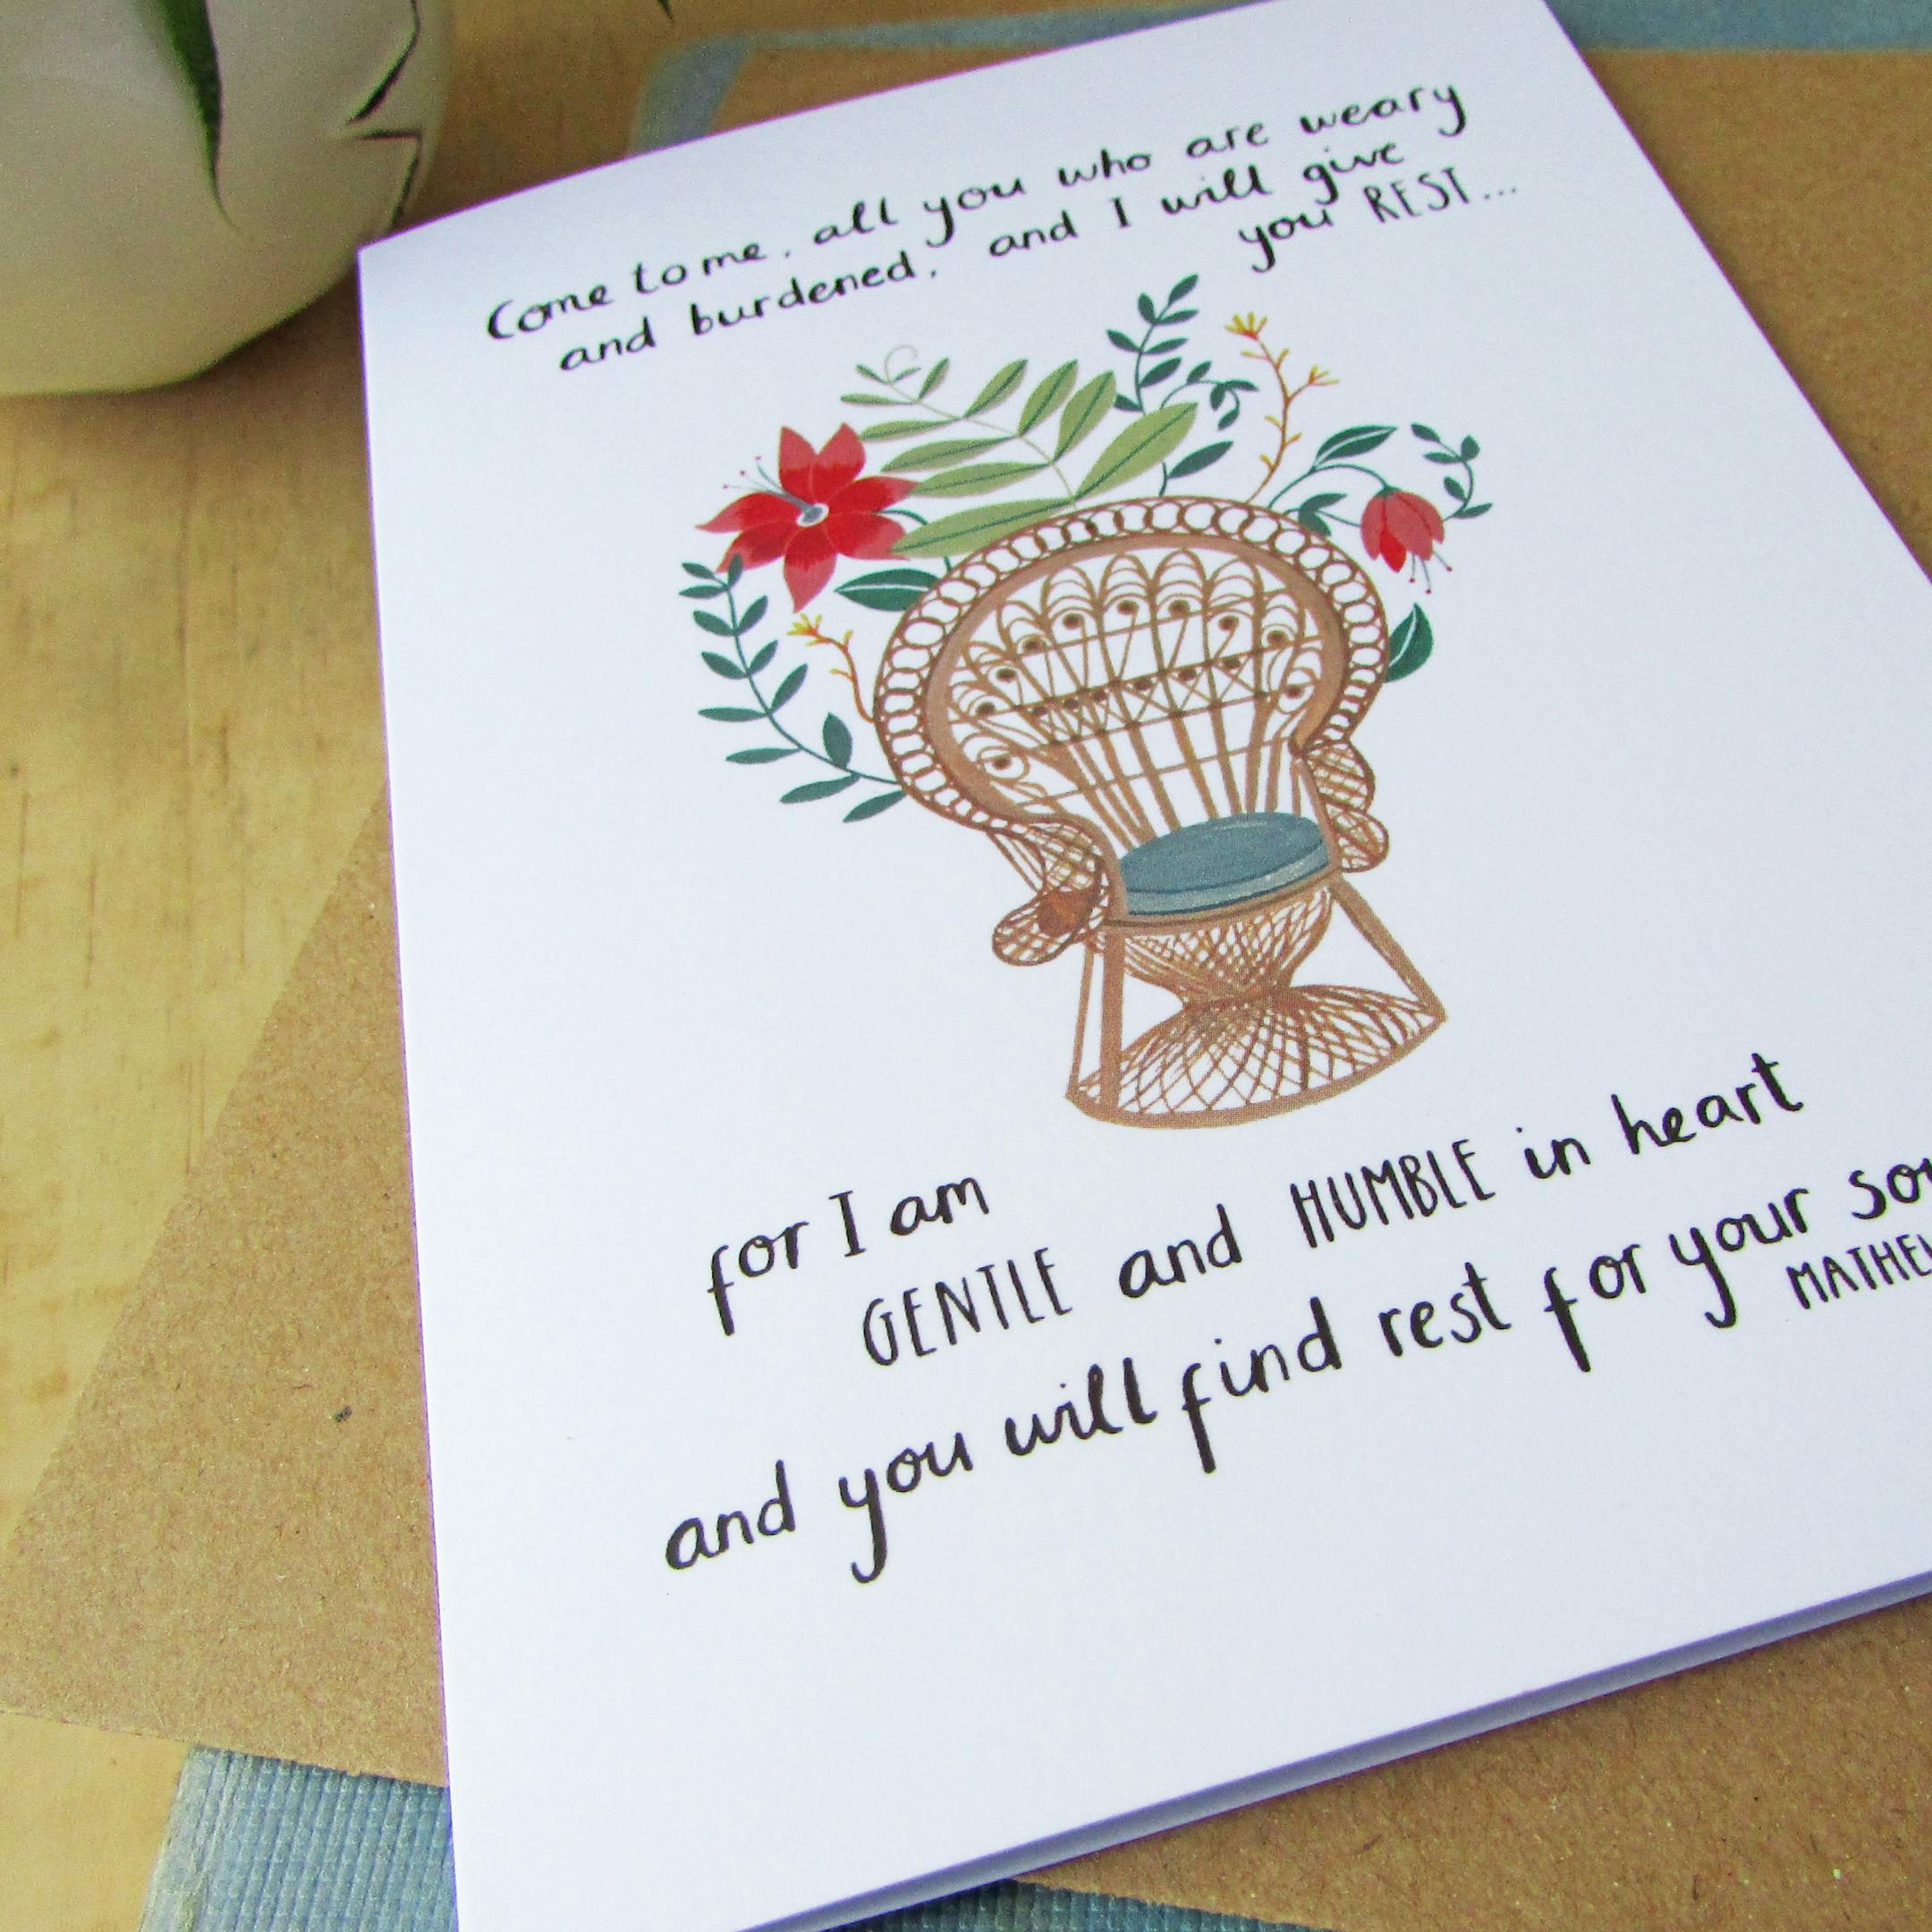 Come to me, all you who are weary
and burdened, and I will give
you REST...
for I am
GENTLE and HUMBLE in heart
and you will find rest for your